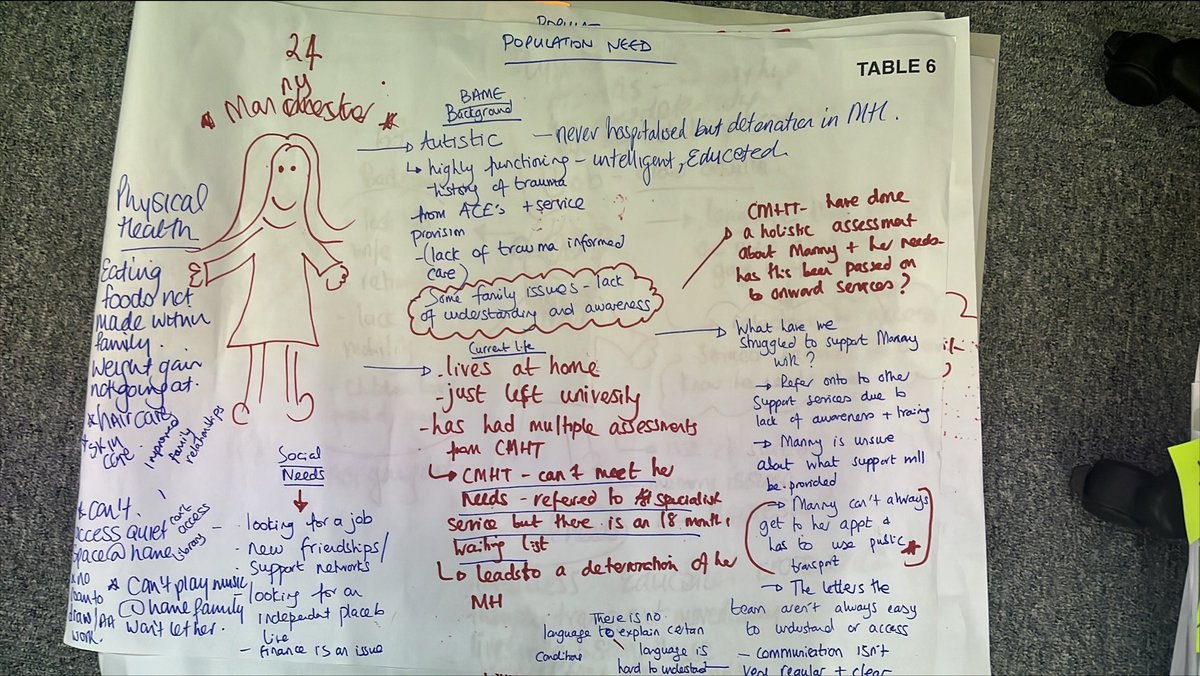 POPULATION NEED
TABLE 6
24
ny
* Manchester *
BAME
Background
Autistic — never hospitalised but detenation in MH.
↳ highly functioning – intelligent, Educated
history of trauma
from ACE's + service
provision
- (lack of trauma informed
care)
Some family issues – lack
of understanding and awareness
CMHT – have done
a holistic assessment
about Manny + her needs-
has this been passed on
to onward services?
Physical
Health
Eating
foods not
made within
family.
Weight gain
not going
* HAIR CARE
* SKIN
care
improved
family
relationships
Current life
- lives at home
- just left univesity
- has had multiple assessments
from CMHT
↳ CMHT – can't meet her
Needs – referred to specialist
service but there is an 18 month
waiting list
↳ leads to a deteration of her
MH
→ What have we
struggled to support Manny
with?
→ Refer onto to other
support services due to
lack of awareness + traing
→ Manny is unsue
about what support will
be provided
→ Manny can't always
get to her appt &
has to use public *
transport
→ The letters the
team aren't always easy
to undustand or access
– communication isn't
very regular + clear
Social
Needs
- looking for a job
- new friendships/
support networks
- looking for an
independent place to
live
- finance is an issue
* can't
access quiet
space @ home
can't access
library
* no
room to
draw/AA
work.
* Can't play music
@ home family
won't let her.
There is no
language to explain certan
conditions
language is
hard to understand